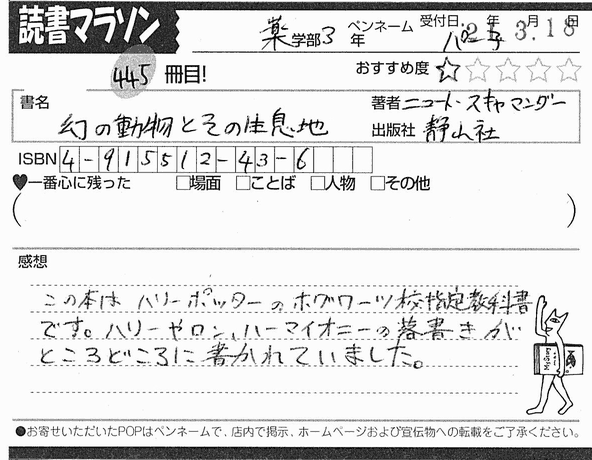 読書マラソン
薬学部3年
ペンネーム パー子
受付日: 年 3.月18日
445冊目!
おすすめ度 ☆☆☆☆☆
書名 幻の動物とその生息地
著者 ニュート・スキャマンダー
出版社 静山社
ISBN 4-915512-43-6
♥一番心に残った □場面 □ことば □人物 □その他
( )
感想
この本はハリーポッターのホグワーツ校指定教科書
です。ハリーやロン、ハーマイオニーの落書きが
ところどころに書かれていました。
●お寄せいただいたPOPはペンネームで、店内で掲示、ホームページおよび宣伝物への転載をご了承ください。